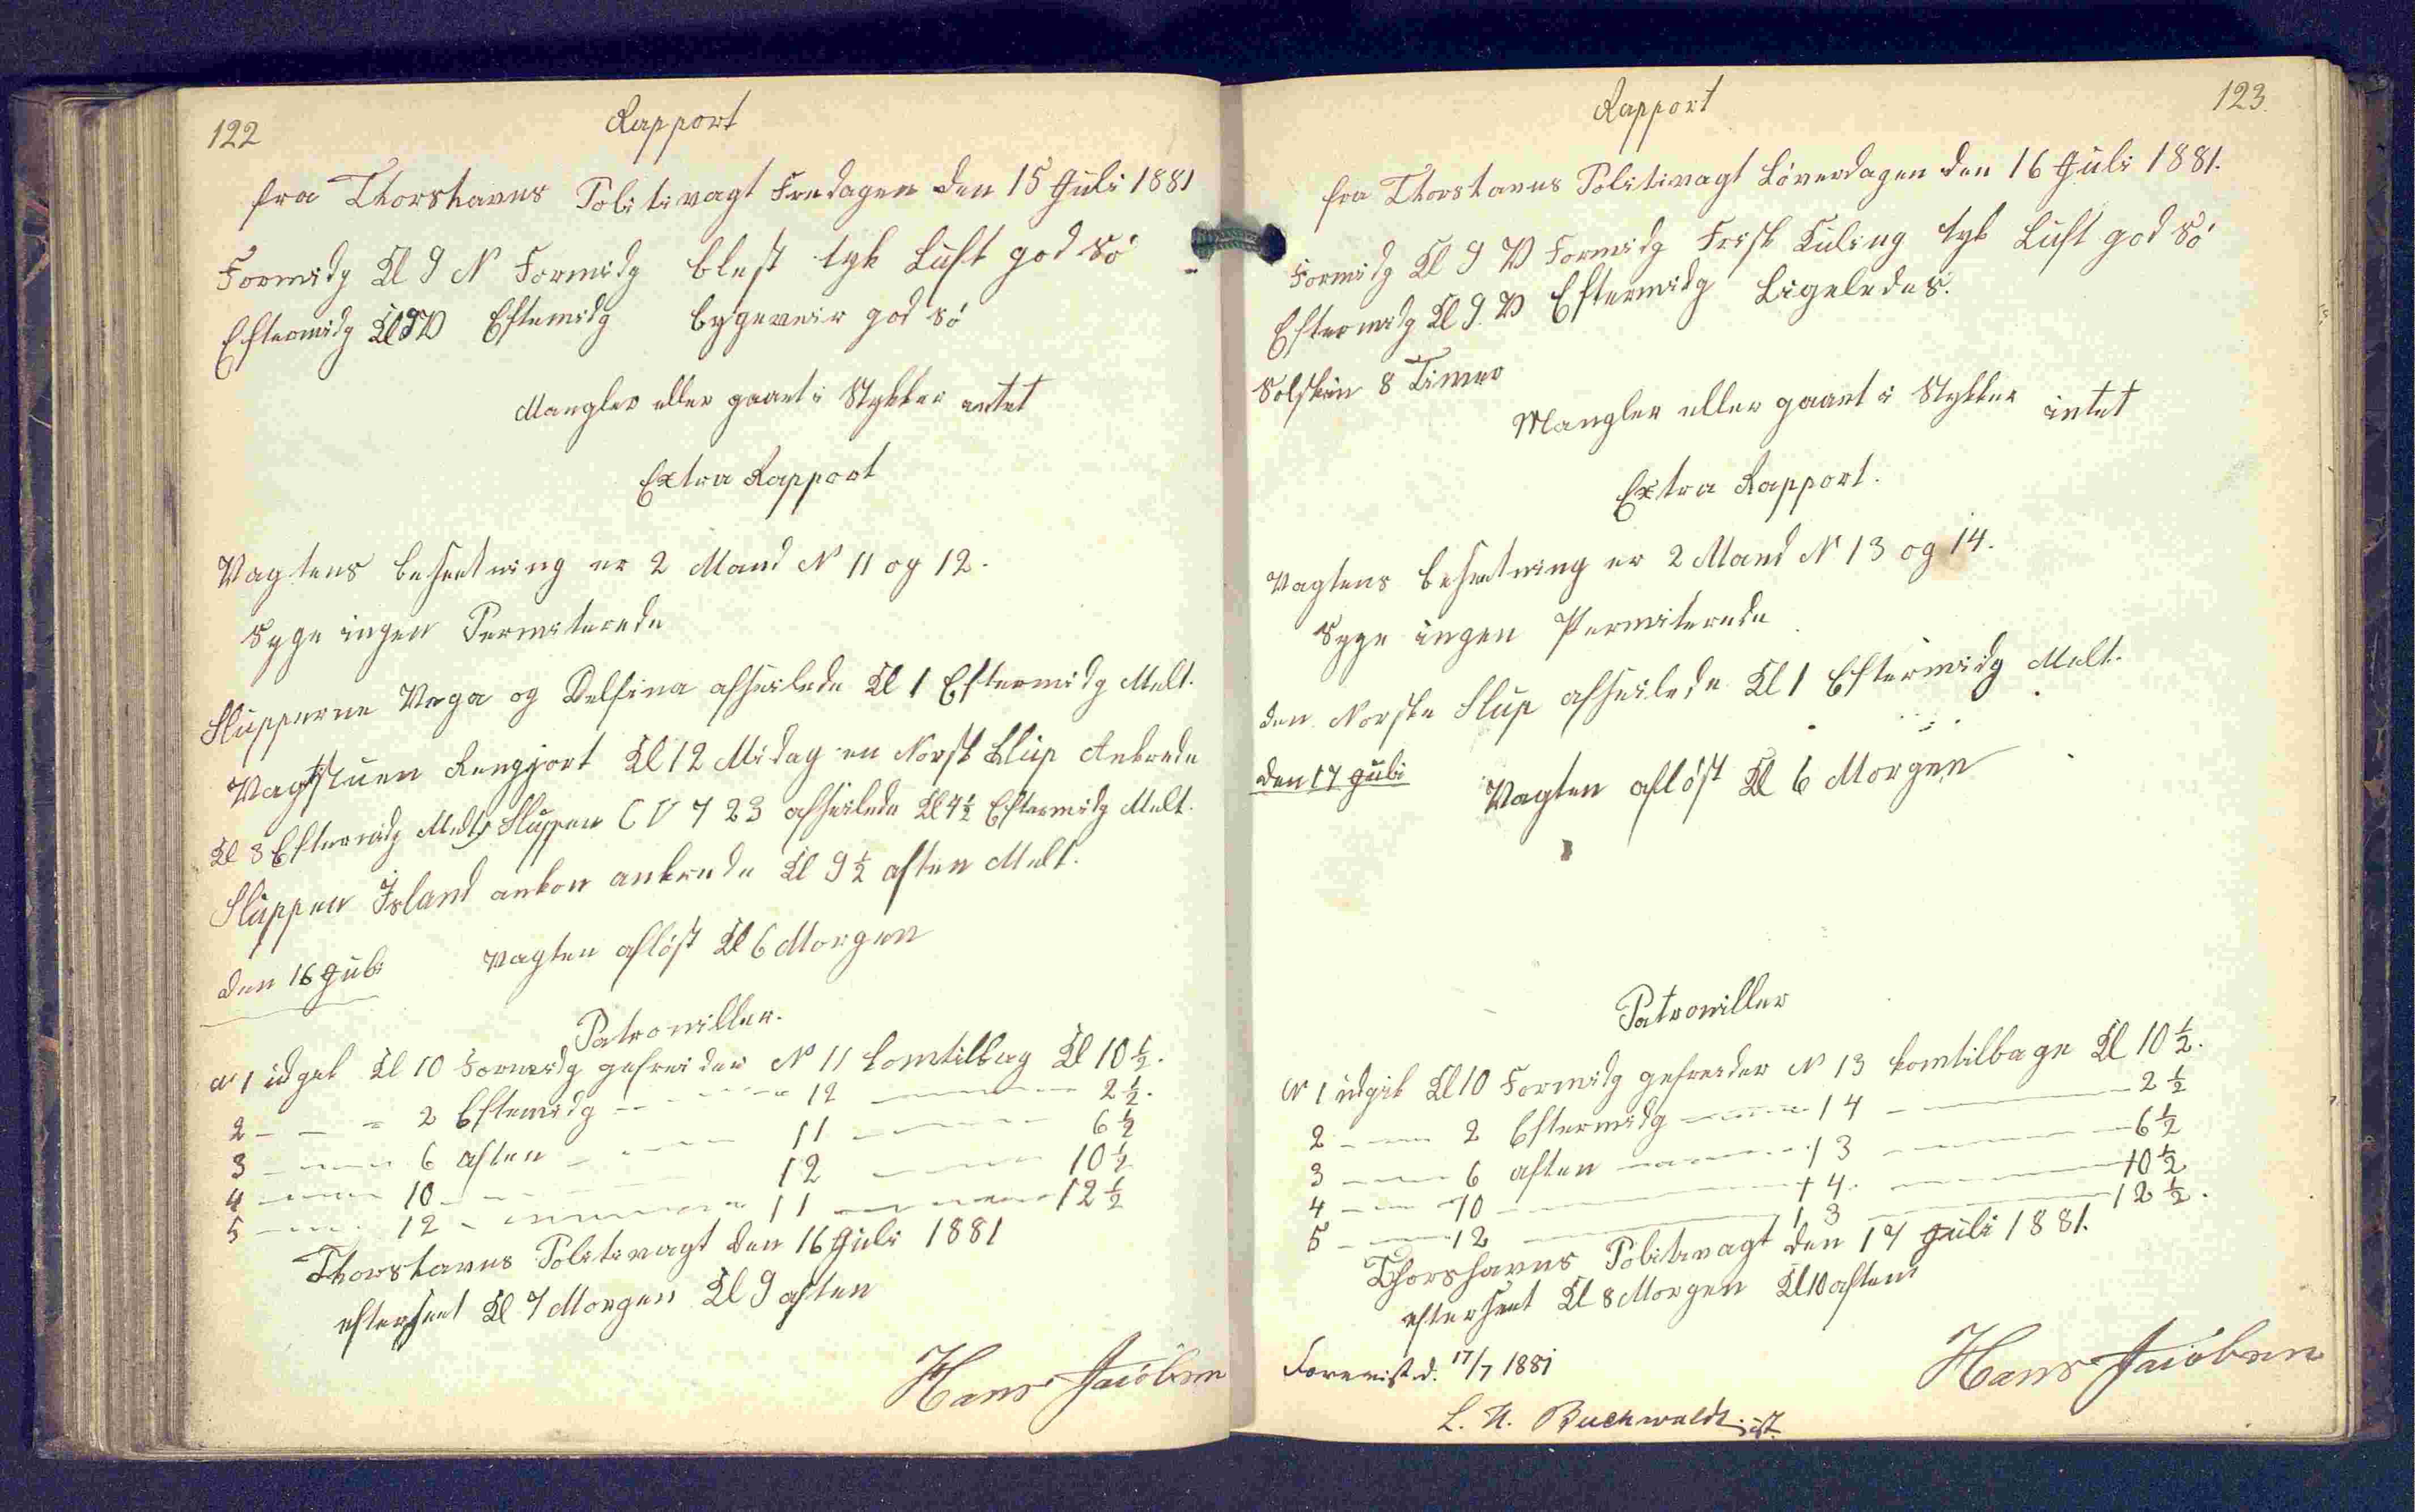 122
Rapport
fra Thorshavns Politivagt Fredagen den 15 Juli 1881
Formidg Kl 9 N Formidg blest tyk Luft god Sö
Eftermidg Kl 9 V Eftemidg bygeveir god Sö
Mangler eller gaaet i Stykker intet
Extra Rapport
Vagtens besætning er 2 Mand N 11 og 12.
Syge ingen Permiterede
Slupperne Vega og Delfina afseilede Kl 1 Eftermidg Melt.
Vagtstuen Rengjort Kl 12 Midag en Norsk Slup Ankrede
Kl 3 Eftermidg Melt Sluppen C V 7 23 afseilede Kl 4½ Eftermidg Melt.
Sluppen Island ankom ankrede Kl 9½ aften Melt.
den 16 Juli Vagten aflöst Kl 6 Morgen
Patroniller.
N 1 udgik Kl 10 Formidg gefreider N 11 komtilbag Kl 10½.
2 - - - 2 Eftemidg - - - 12 - 2½.
3 - - 6 aften - - 11 - 6½
4 - - 10 - - 12 - 10½
5 - - 12 - - 11 - 12½
Thorshavns Politivagt den 16 Juli 1881
efterseet Kl 7 Morgen Kl 9 aften
Hans Jacobsen
123.
Rapport
fra Thorshavns Politivagt Löverdagen den 16 Juli 1881.
Formidg Kl 9 V Formidg Frisk Kuling tyk Luft god Sö
Eftermidg Kl 9. V Eftermidg Ligeledes.
Solskin 8 Timer
Mangler eller gaaet i Stykker intet
Extra Rapport.
Vagtens besætning er 2 Mand N 13 og 14.
Syge ingen Permiterede
den Norske Slup afseilede Kl 1 Eftermidg Melt.
den 17 Juli Vagten aflöst Kl 6 Morgen
Patroniller
N 1 udgik Kl 10 Formidg gefreider N 13 komtilbage Kl 10½.
2 - - 2 Eftermidg - - 14 - - 2½
3 - - 6 aften - - 13 - - 6½
4 - - 10 - - 14. - - 10½
5 - - 12 - - 13 - - 12½.
Thorshavns Politivagt den 17 Juli 1881.
efterseet Kl 8 Morgen Kl 10 aften
Hans Jacobsen
Forevist d. 17/7 1881
L. U. Buchwaldt